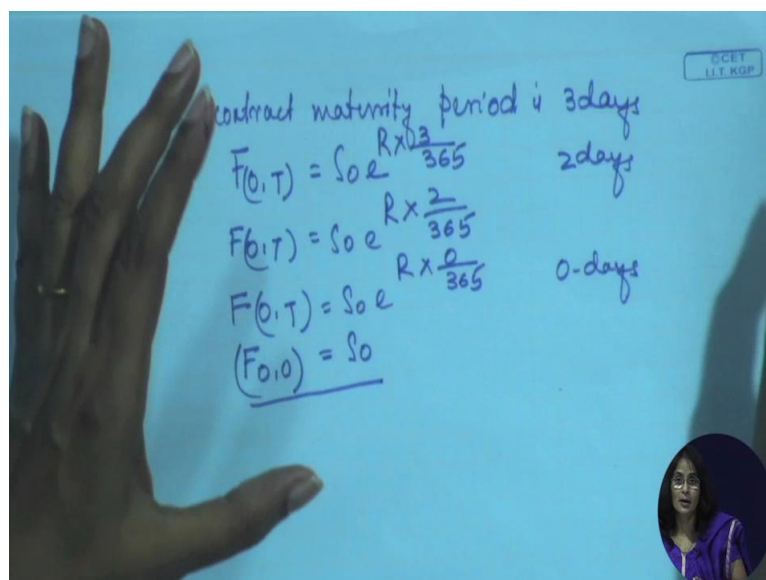 ©CET
I.I.T. KGP
contract maturity period is 3 days
F(0,T) = S0 e^{R × 3/365} 2 days
F(0,T) = S0 e^{R × 2/365}
F(0,T) = S0 e^{R × 0/365} 0-days
(F0,0) = S0